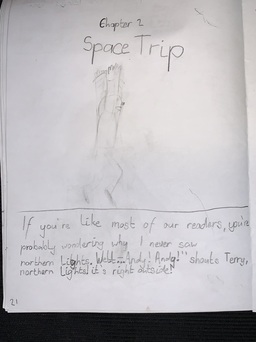 Chapter 2
Space Trip
If you're like most of our readers, you're
probably wondering why I never saw
northern Lights. Well... Andy! Andy!" shouts Terry,
northern Lights! it's right outside!"
21